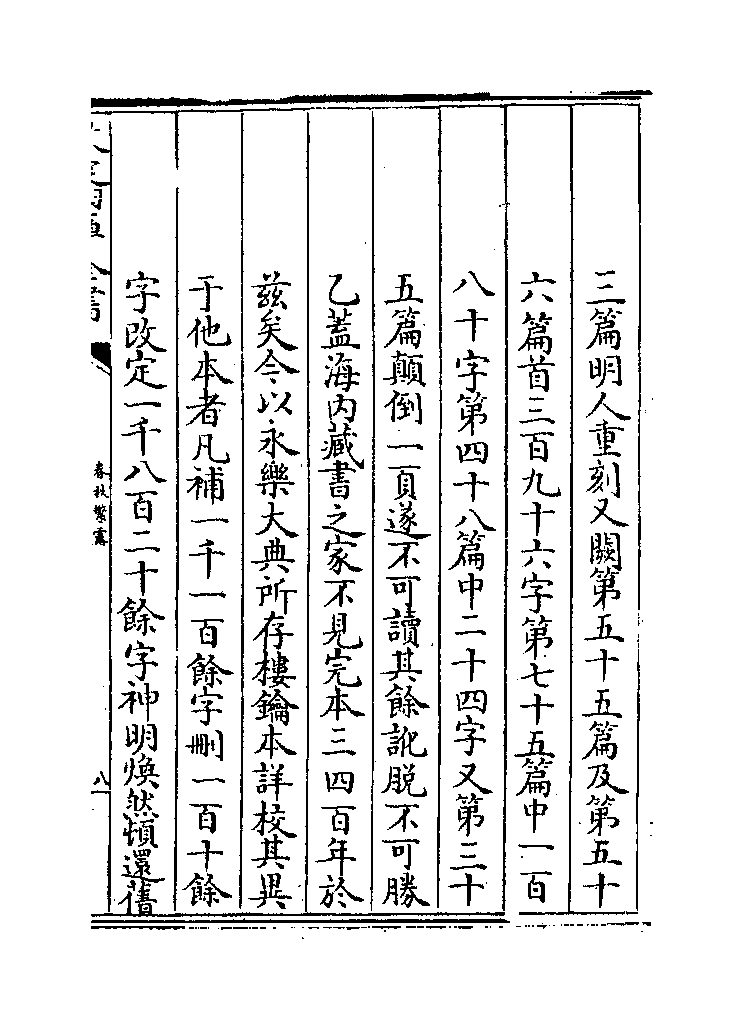 三篇明人重刻又闕第五十五篇及第五十
六篇首三百九十六字第七十五篇中一百
八十字第四十八篇中二十四字又第三十
五篇顛倒一頁遂不可讀其餘訛脱不可勝
乙蓋海内藏書之家不見完本三四百年於
兹矣今以永樂大典所存樓鑰本詳校其異
于他本者凡補一千一百餘字刪一百十餘
字改定一千八百二十餘字神明煥然頓還舊
春秋繁露
八